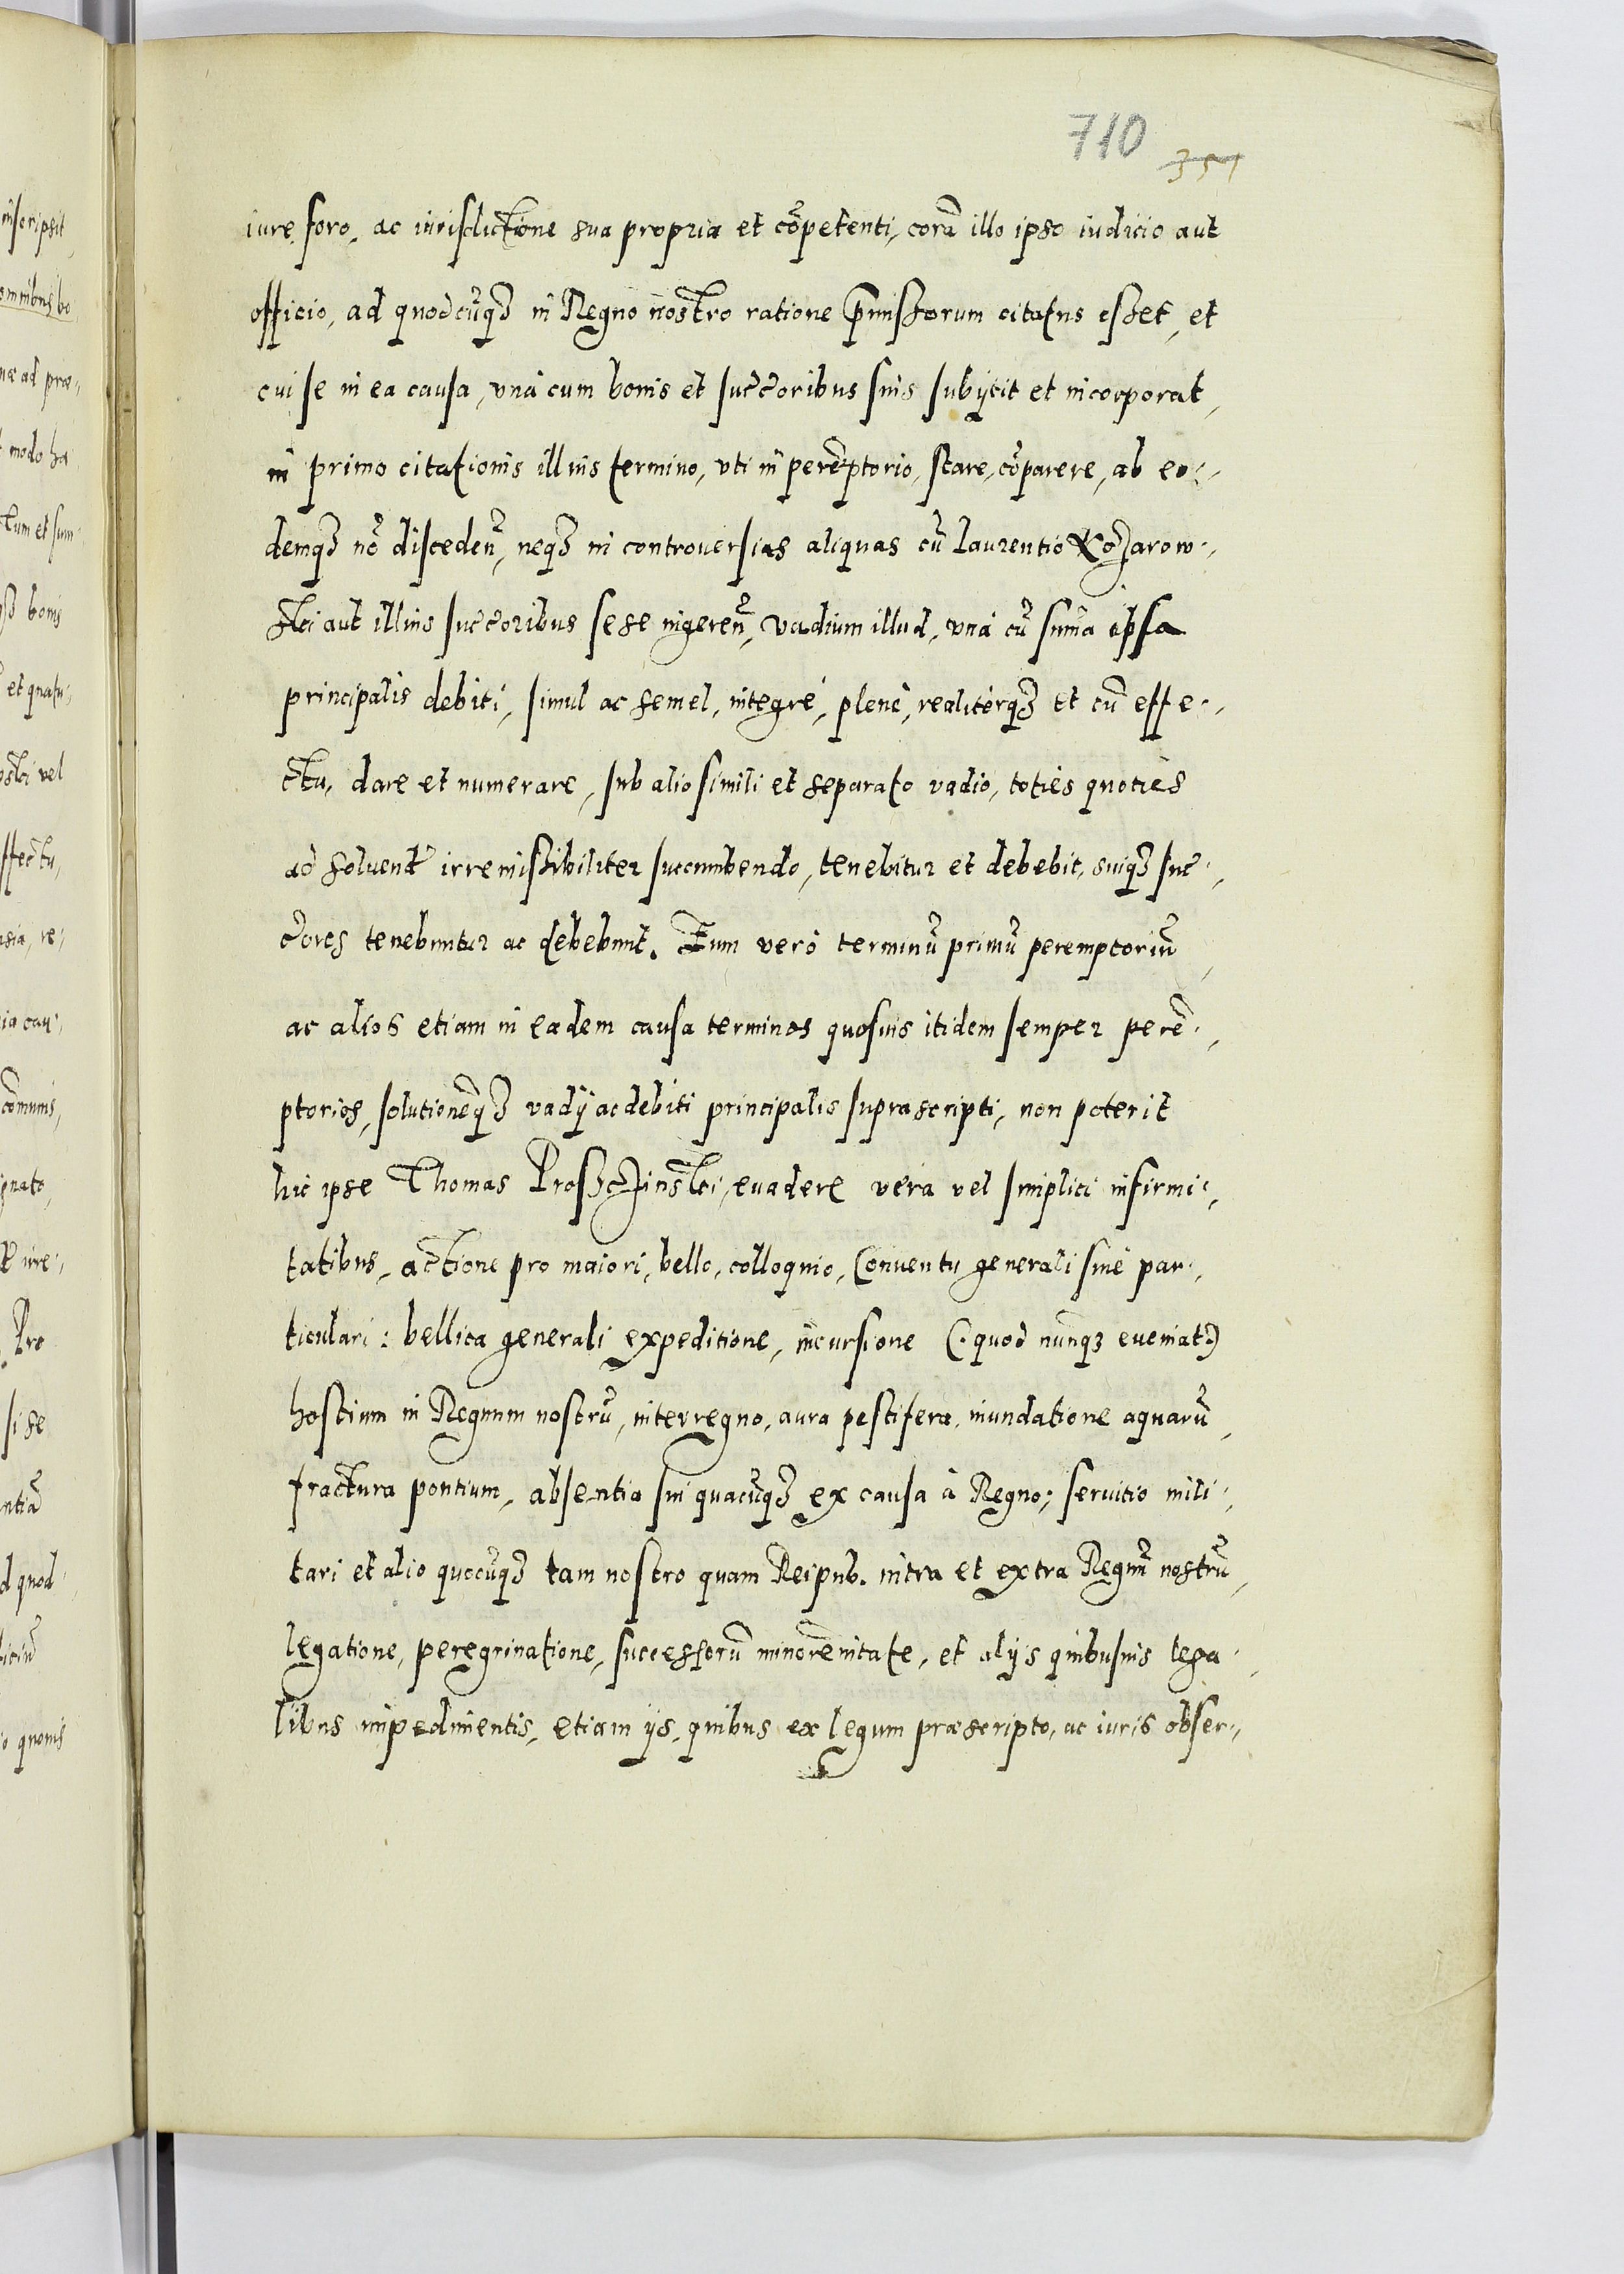 710
351
iure, foro, ac iurisdictione sua propria et cõpetenti, corã illo ipso iudicio aut
officio, ad quodcũq3 in Regno nostro ratione p̃missorum citatus esset, et
cui se in ea causa, vnà cum bonis et succ̃oribus suis subijcit et incorporat,
in primo citationis illius termino, vti in perẽptorio, stare, cõparere, ab eo-,
demq3 nõ discedeñ, neq3 in controuersias aliquas cũ Laurentio Kozarow-,
ski aut illius succ̃oribus sese ingereñ, vadium illud, vnà cũ sum̃a ipsa
principalis debiti, simul ac semel, integrè, plenè, realiterq3 et cũ effe-,
ctu, dare et numerare, sub alio simili et separato vadio, toties quoties
ad soluend̃ irremissibiliter succumbendo, tenebitur et debebit, suiq3 suc̃-,
c̃ores tenebuntur ac debebunt. Eum verò terminũ primũ peremptoriũ,
ac alios etiam in eadem causa terminos quosuis itidem semper perẽ-,
ptorios, solutionẽq3 vadij ac debiti principalis suprascripti, non poterit
hic ipse Thomas Proszczinski, euadere vera vel simplici infirmi-,
tatibus, actione pro maiori, bello, colloquio, Conuentu generali siue par-,
ticulari: bellica generali expeditione, incursione (: quod nunq3 eueniat :)
hostium in Regnum nostrũ, interregno, aura pestifera, inundatione aquarũ,
fractura pontium, absentia sui quacũq3 ex causa à Regno; seruitio mili-,
tari et alio quocũq3 tam nostro quam Reipub. intra et extra Regnũ nostrũ,
legatione, peregrinatione, successorũ minorẽnitate, et alijs quibusuis lega-,
libus impedimentis, etiam ijs, quibus ex legum præscripto, ac iuris obser-,